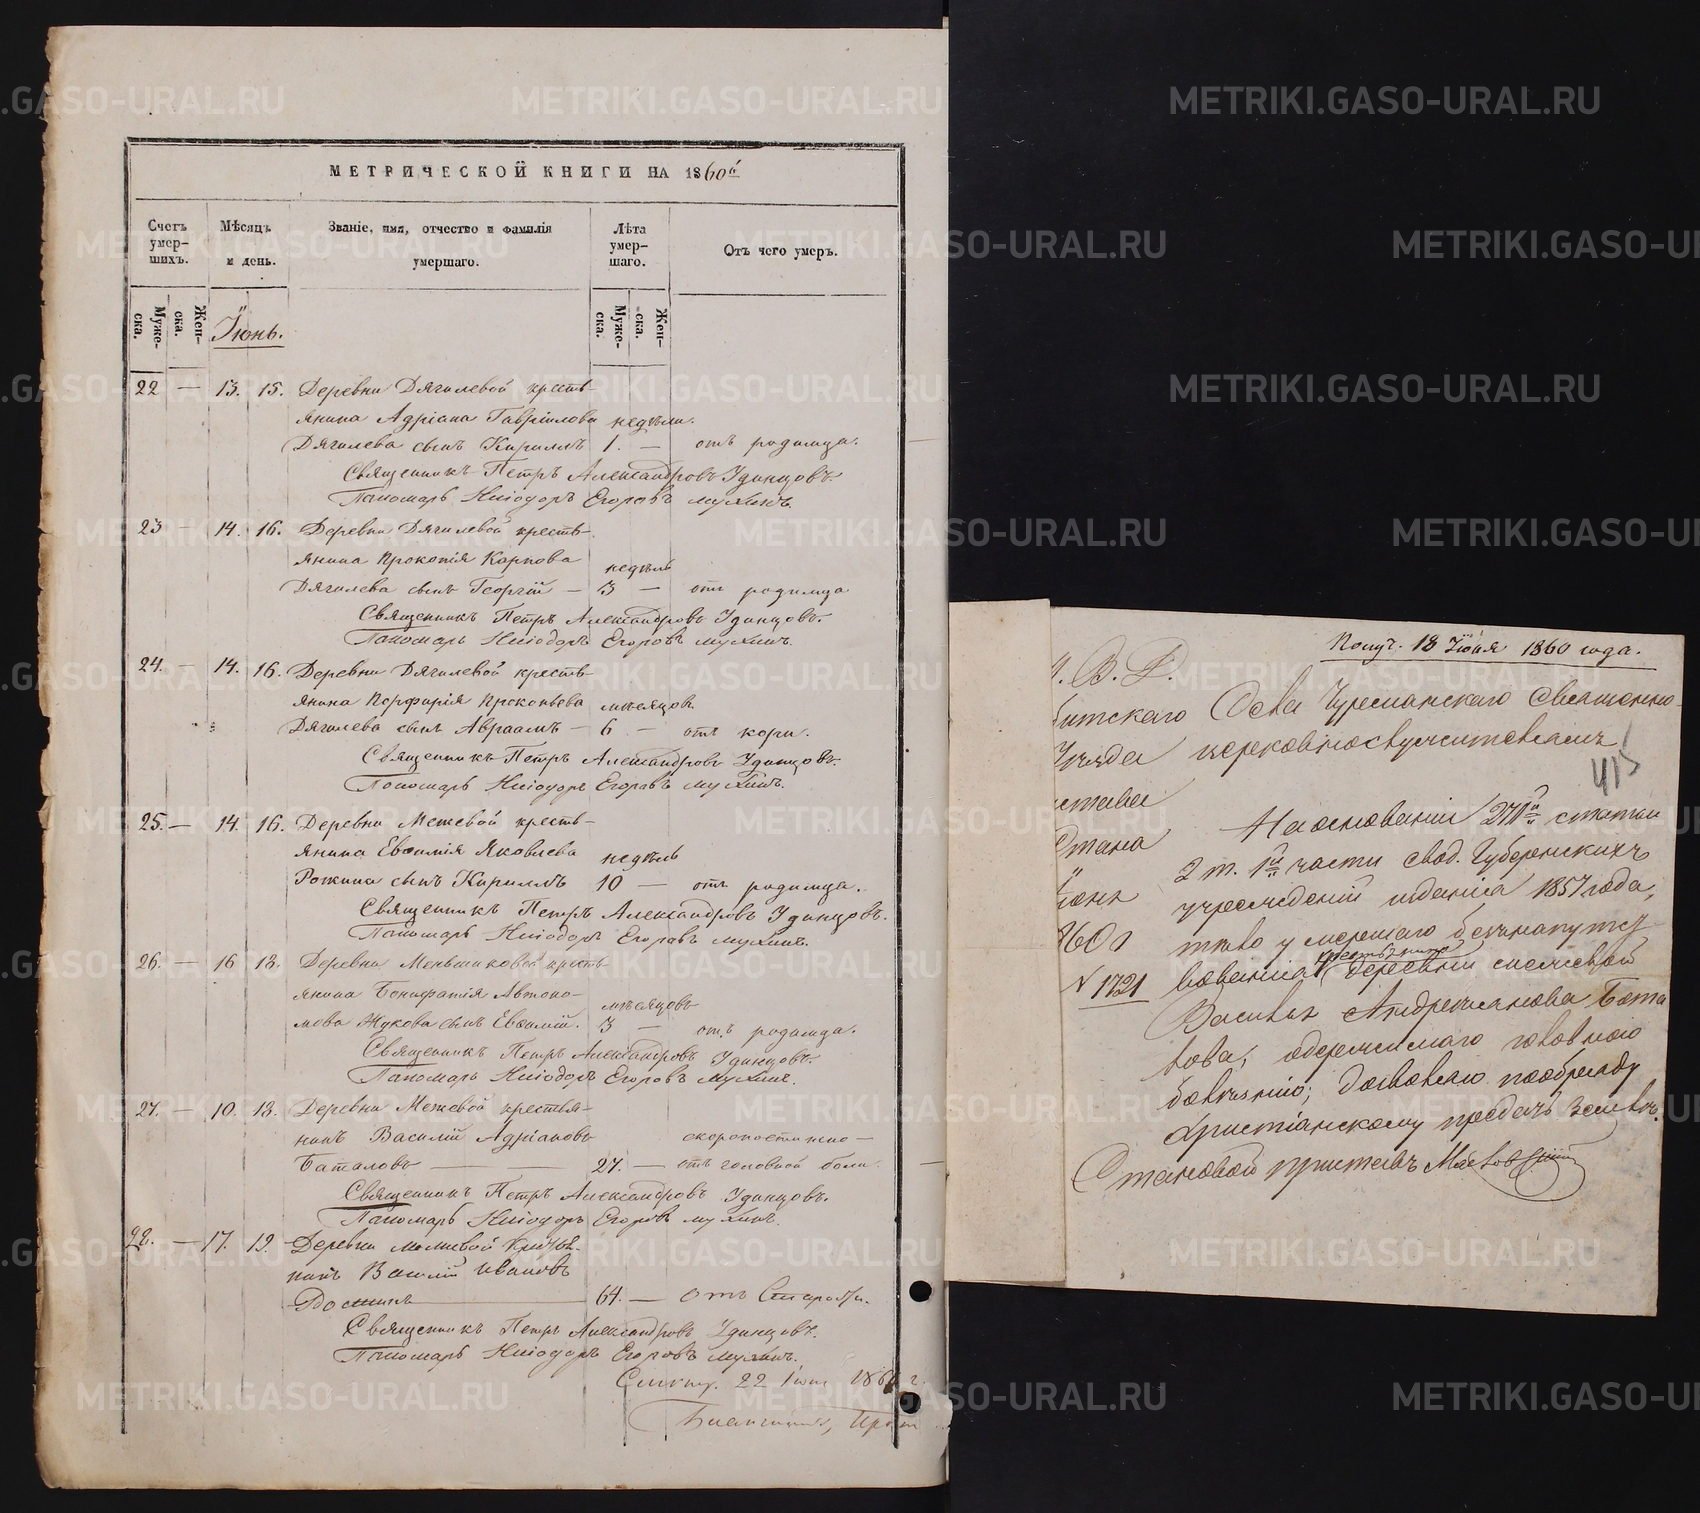 МЕТРИЧЕСКОЙ КНИГИ НА 1860й
Счетъ умер-шихъ.
Мѣсяцъ и день.
Званіе, имя, отчество и фамилія умершаго.
Лѣта умер-шаго.
Отъ чего умеръ.
Муже-ска. Жен-ска.
Іюнь.
Муже-ска. Жен-ска.
22 — 13. 15. Деревни Дягилевой кресть-
янина Адріана Гаврилова недѣли.
Дягилева сынъ Кириллъ 1. — отъ родимца.
Священникъ Петръ Александровъ Удинцовъ.
Пономарь Нигодоръ Егоровъ Мухинъ.
23 — 14. 16. Деревни Дягилевой кресть-
янина Прокопія Карпова недѣль
Дягилева сынъ Георгій — 3 — отъ родимца
Священникъ Петръ Александровъ Удинцовъ.
Пономарь Нигодоръ Егоровъ Мухинъ.
24. — 14. 16. Деревни Дягилевой кресть-
янина Порфирія Прокопьева мѣсяцов.
Дягилева сынъ Авраамъ — 6 — отъ кори.
Священникъ Петръ Александровъ Удинцовъ.
Пономарь Нигодоръ Егоровъ Мухинъ.
25. — 14. 16. Деревни Межевой кресть-
янина Евѳимія Яковлева недѣль
Рожина сынъ Кириллъ 10 — отъ родимца.
Священникъ Петръ Александровъ Удинцовъ.
Пономарь Нигодоръ Егоровъ Мухинъ.
26. — 16 18. Деревни Меньшиковой кресть-
янина Бонифатія Автоно-
мова Жукова сынъ Евѳимій. мѣсяцовъ 3 — отъ родимца.
Священникъ Петръ Александровъ Удинцовъ.
Пономарь Нигодоръ Егоровъ Мухинъ.
27. — 10. 18. Деревни Межевой крестья-
нинъ Василій Адріановъ скоропостижно —
Баталовъ — 27. — отъ головной боли.
Священникъ Петръ Александровъ Удинцовъ.
Пономарь Нигодоръ Егоровъ Мухинъ.
28. — 17. 19. Деревни
Василій Ивановъ
64. — отъ Старости.
Священникъ Петръ Александровъ Удинцовъ.
Пономарь Нигодоръ Егоровъ Мухинъ.
22 1860 г.
Получ. 18 Іюня 1860 года.
М. В. Д.
415
става
Стана
Іюня
1860 г
№ 1721
священно
церковнослужителямъ
На основаніи 271й статьи
2 т. 1й части свод. Губернскихъ
учрежденій изданія 1857 года,
тѣло умершаго
крестьянина
деревни Межевой
Василья Андреянова Бота
лова, одержимаго головною
болѣзнію, дозволяю по обряду
христіанскому предать землѣ.
Становой приставъ
METRIKI.GASO-URAL.RU